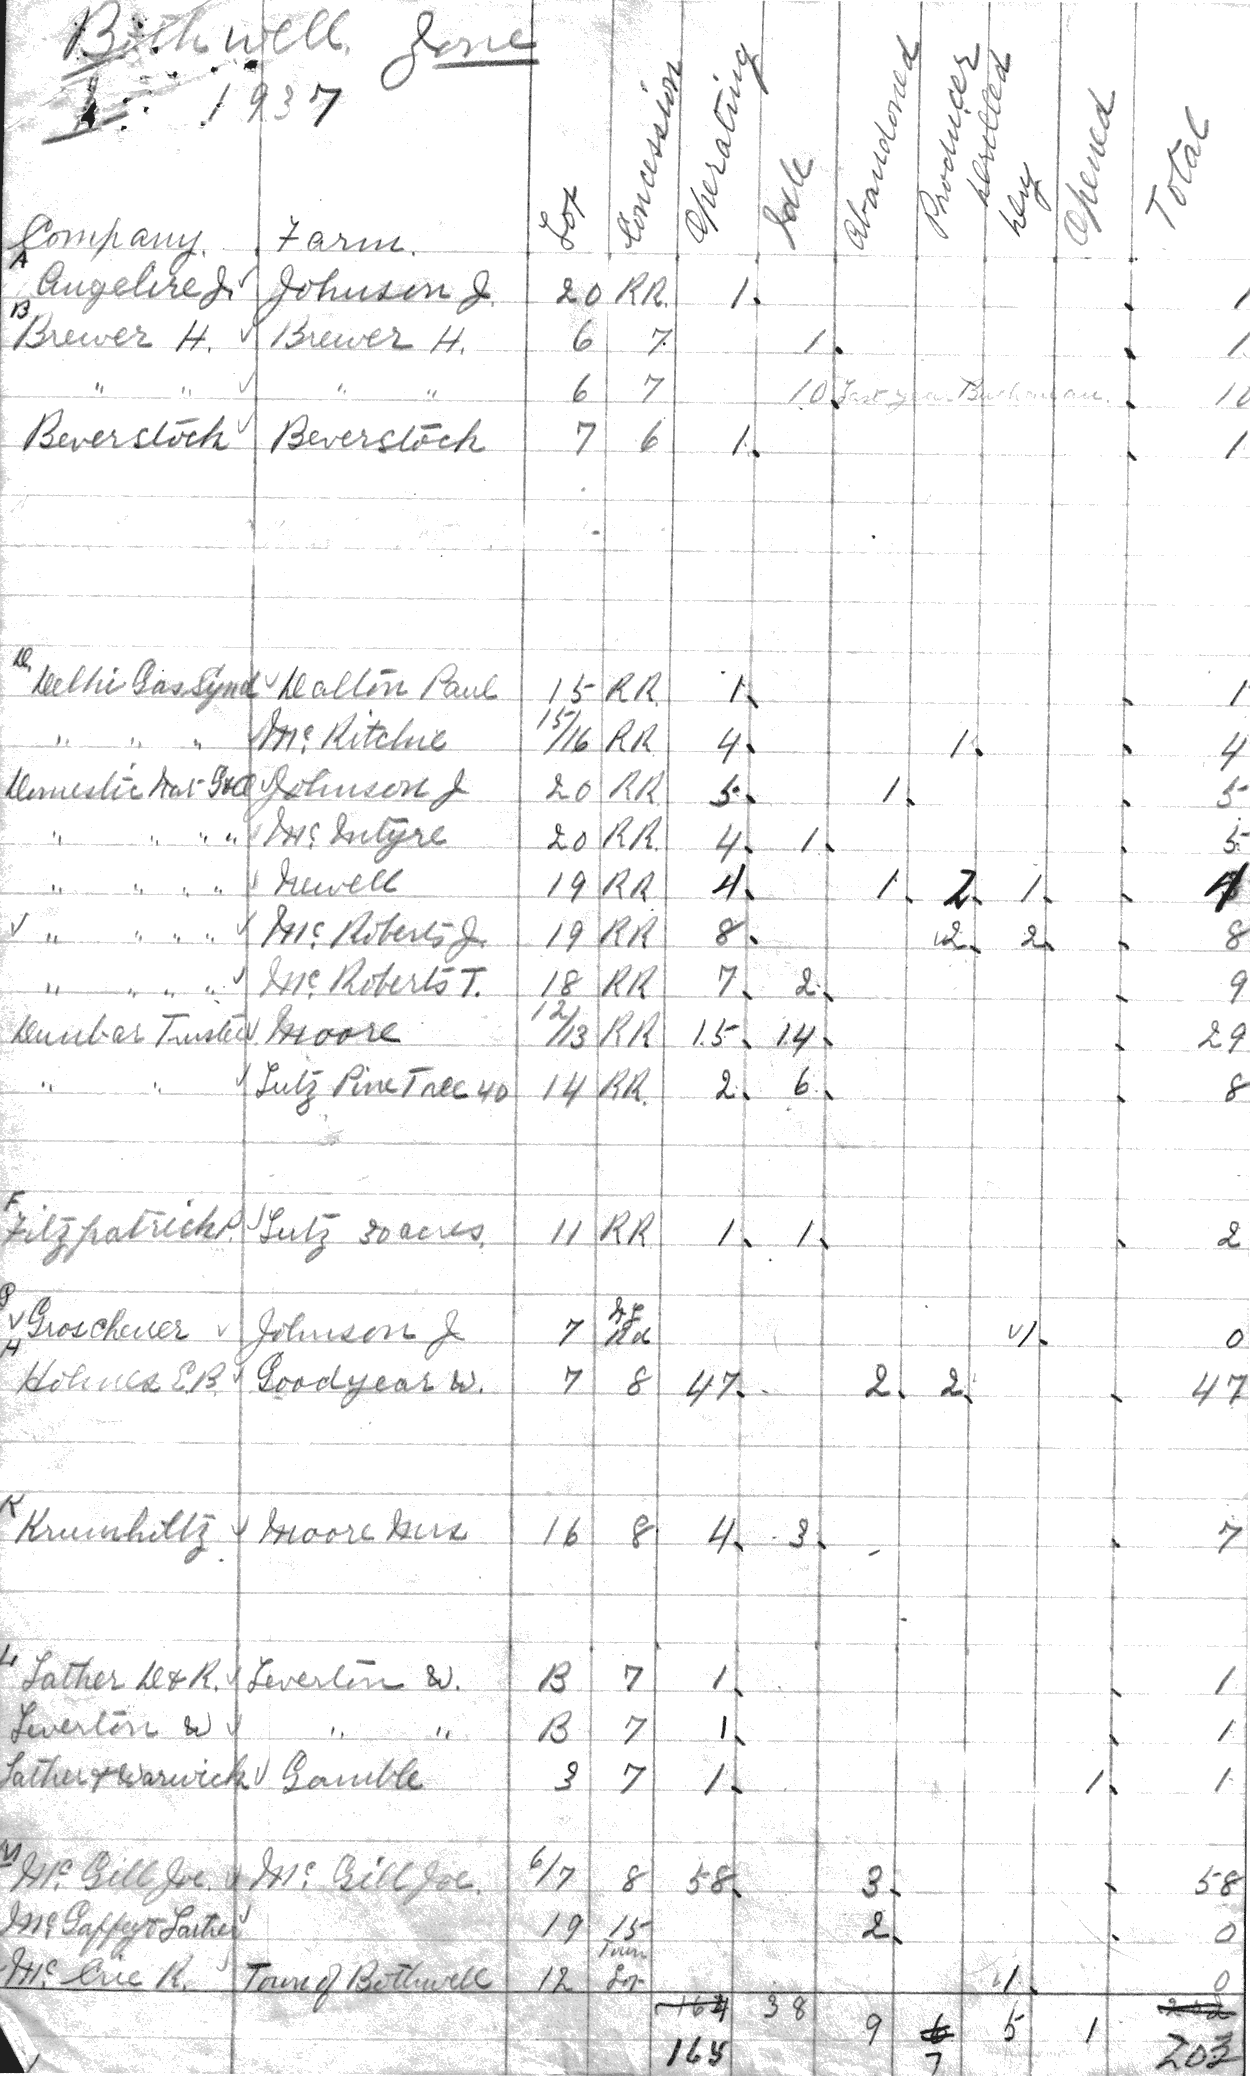 Bothwell Zone
1937
Company. Farm. Lot Concession Operating Idle Abandoned Producer Drilled Dry Opened Total
A
Angelire J. ✓ Johnson J. 20 RR. 1. 1
B
Brewer H. ✓ Brewer H. 6 7. 1. 1
" " ✓ " " 6 7 10 Last year Buchanan. 10
Beverstock ✓ Beverstock 7 6 1. 1
D
Delhi Gas Synd ✓ Dalton Paul 15 RR 1. 1
" " " ✓ Mc Ritchie 15/16 RR 4. 1. 4
Domestic Nat G&O ✓ Johnson J 20 RR 5. 1. 5
" " " " ✓ Mc Intyre 20 RR. 4. 1. 5
" " " " ✓ Newell 19 RR 4. 1. 2. 1. 4
✓ " " " " ✓ Mc Roberts J. 19 RR 8. 2. 2. 8
" " " " ✓ Mc Roberts T. 18 RR 7. 2. 9
Dunbar Trustee ✓ Moore 12/13 RR 15. 14. 29
" " ✓ Lutz Pine Tree 40 14 RR. 2. 6. 8
F
Fitzpatrick P. ✓ Lutz 30 acres. 11 RR 1. 1. 2
G
✓ Groscheuer ✓ Johnson J 7 Rd ✓1. 0
H
Holmes E.B. ✓ Goodyear W. 7 8 47. 2. 2. 47
K
Krumhiltz ✓ Moore Mrs 16 8 4. 3. 7
L
Lather D & R. ✓ Leverton W. B 7 1. 1
Leverton W ✓ " " B 7 1. 1
Lather & Warwick ✓ Gamble 3 7 1. 1. 1
M
Mc Gill Joe. ✓ Mc Gill Joe. 6/7 8 58. 3. 58
Mc Gaffey & Lather ✓ 19 15 2. 0
Mc Crie R. Town of Bothwell 12 Town Lot 1. 0
164 38 9 6 5 1 202
165 7 203